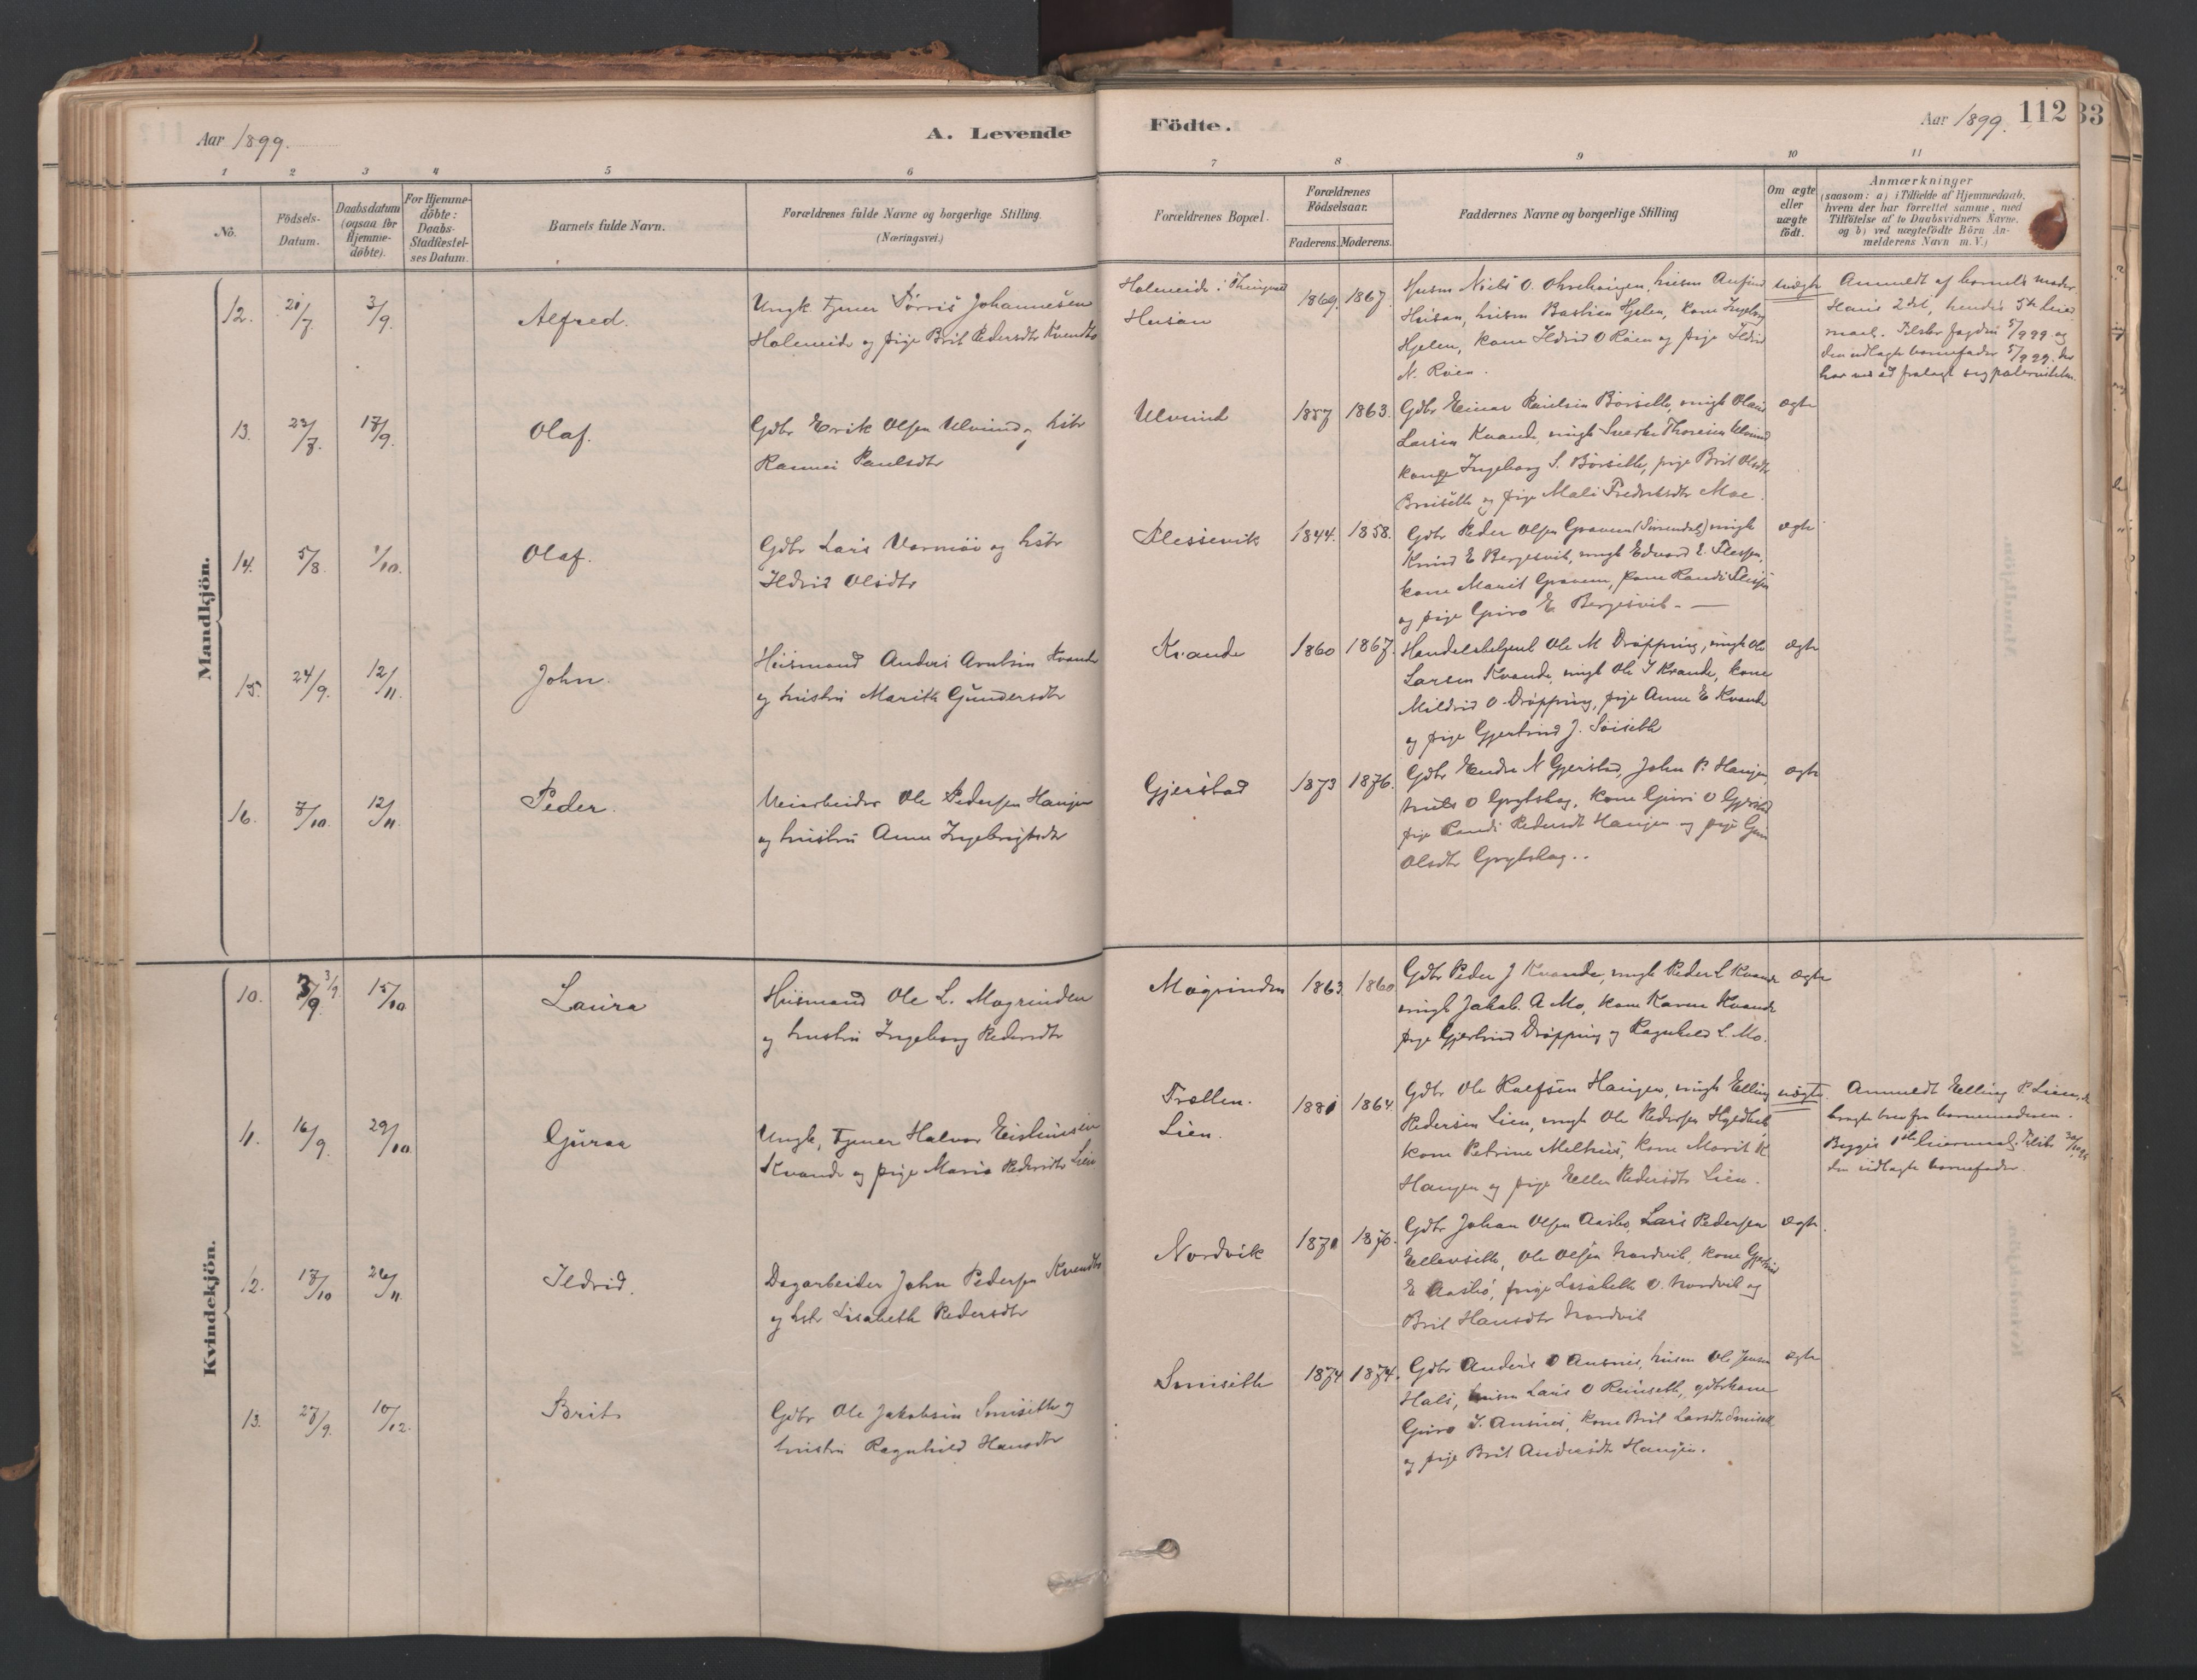 Aar 1899.
A. Levende
Födte.
Aar 1899.
112
33
1 2 3 4 5 6 7 8 9 10 11
No.
Födsels-
Datum.
Daabsdatum
(ogsaa for
Hjemme-
döbte).
For Hjemme-
döbte:
Daabs-
Stadfæstel-
ses Datum.
Barnets fulde Navn.
Forældrenes fulde Navne og borgerlige Stilling.
(Næringsvei.)
Forældrenes Bopæl.
Forældrenes
Födselsaar.
Faderens. Moderens.
Faddernes Navne og borgerlige Stilling
Om ægte
eller
uægte
födt.
Anmærkninger
(saasom: a) i Tilfælde af Hjemmedaab,
hvem der har forrettet samme, med
Tilföielse af to Daabsvidners Navne,
og b) ved uægtefödte Börn An-
melderens Navn m. V.)
Mandkjön.
12. 21/7 3/9. Alfred.
Ungk. tjener Sörris Johannesen
Holmeide og pige Brit Pedersdtr Kvendbø
Holmeide i Thingvold
Husan
1869. 1867.
Husm Niels O. Ohrehaugen, husm Anfind
Husan, husm Bastian Hjelen, kone Ingeborg
Hjelen, kone Ildrid O Röen og pige Ildrid
N. Röen.
uægte
Anmeldt af barnets moder
Hans 2det, hendes 5te leier-
maal. Tilskr fogden 5/9 99 og
den udlagte barnefader 5/9 99. der
har ved ed fralagt sig paterniteten.
13. 22/7. 17/9. Olaf.
Gdbr Erik Olsen Ulvund og hstr
Rannei Paulsdtr
Ulvund
1857 1863.
Gdbr Einar Paulsen Börseth, ungk Olaus
Larsen Kvande, ungk Sverke Thoresen Ulvund
kone Ingeborg S. Börseth, pige Brit Olsdtr
Bruseth og pige Mali Fredriksdtr Moe.
ægte
14. 5/8. 1/10. Olaf.
Gdbr Lars Varmöi og hstr
Ildrid Olsdtr
Flessevik
1844. 1858.
Gdbr Peder Olsen Gravem (Surendal) ungk
Knud E Bergesvik, ungk Edvard E. Flessen,
kone Marit Gravem, kone Randi Flessen
og pige Guro E Bergesvik. —
ægte
15. 24/9. 12/11. John.
Husmand Anders Arntsen Kvande
og hustru Marith Gundersdtr
Kvande
1860 1867.
Handelsbetjent Ole M Dröpping, ungk Ole
Larsen Kvande, ungk Ole I Kvande, kone
Mildrid O. Dröpping, pige Anne E Kvande
og pige Gjertrud J. Söiseth
ægte
16. 7/10. 12/11. Peder.
Veiarbeider Ole Pedersen Haugen
og hustru Anne Ingebrigtsdtr
Gjerstad
1873 1876.
Gdbr Endre N Gjerstad, John P. Haugen,
Nils O Grytskog, kone Guri O Gjerstad
pige Randi Pedersdt Haugen og pige Guri
Olsdtr Grytskog..
ægte
Kvindekjön.
10. 3/9. 3/9 15/10 Laura
Husmand Ole L. Mogrinden
og hustru Ingeborg Pedersdtr
Mogrinden
1863 1860
Gdbr Peder J Kvande, ungk Peder L Kvande
ungk Jakob A Mo, kone Karen Kvande
pige Gjertrud Dröpping og Ragnhild L. Mo.
ægte
11. 16/9. 29/10 Guraa
Ungk, tjener Halvor
Kvande og pige Maria Pedersdtr Lien
Trællen.
Lien.
1881 1864.
Gdbr Ole Rolfsen Haugen, ungk Elling
Pedersen Lien, ungk Ole Pedersen
kone Petrine Melhus, kone Marit K
Haugen og pige Ellen Pedersdtr Lien.
uægte.
Anmeldt Elling P Lien, der
bragte brev fra barnemoderen.
Begges 1ste leiermaal. Tilskr
den udlagte barnefader.
12. 17/10 26/11 Ildrid.
Dagarbeider John Pedersen Kvendbø
og hstr Lisabeth Pedersdtr
Nordvik
1871 1870.
Gdbr Johan Olsen Aasbö, Lars Pedersen
Ellevseth, Ole Olsen Nordvik, kone Gjertrud
E Aasbö, pige Lisabeth O. Nordvik og
Brit Hansdtr Nordvik
ægte.
13. 27/9. 10/12. Brit
Gdbr Ole Jakobsen Smiseth og
hustru Ragnhild Hansdtr
Smiseth
1874 1874.
Gdbr Anders O Ansnes, husm Ole Jensen
Hals, husm Lars O Reinseth, gdbrkone
Guro I. Ansnes, kone Brit Larsdtr Smiseth
og pige Brit Andersdtr Haugen.
ægte